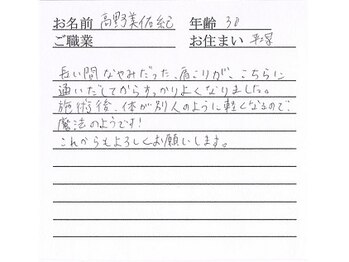 お名前 高野美佑紀 年齢 38
ご職業 お住まい 平塚
長い間なやみだった、肩こりが、こちらに
通いだしてからすっかりよくなりました。
施術後、体が別人のように軽くなるので、
魔法のようです!
これからもよろしくお願いします。